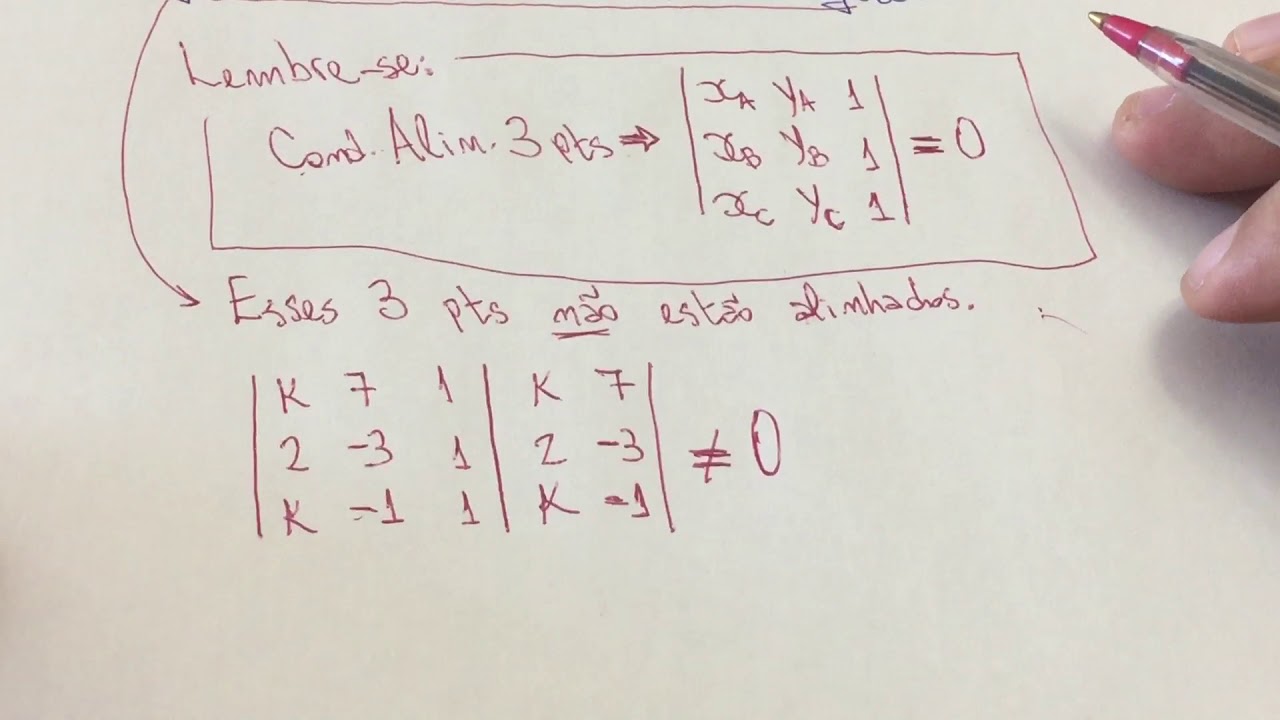 Lembre-se:
Cond. Alin. 3 pts ⇒ | xA yA 1 |
| xB yB 1 | = 0
| xC yC 1 |
Esses 3 pts não estão alinhados.
| K 7 1 | K 7 |
| 2 -3 1 | 2 -3 | ≠ 0
| K -1 1 | K -1 |